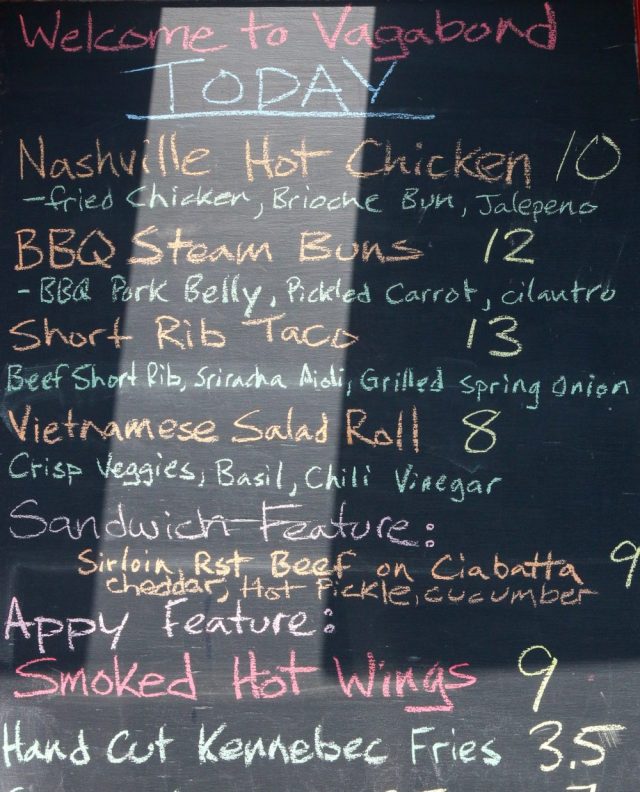 Welcome to Vagabond
TODAY
Nashville Hot Chicken 10
-fried Chicken, Brioche Bun, Jalepeno
BBQ Steam Buns 12
- BBQ Pork Belly, Pickled Carrot, cilantro
Short Rib Taco 13
Beef Short Rib, Sriracha Aioli, Grilled spring onion
Vietnamese Salad Roll 8
Crisp Veggies, Basil, Chili Vinegar
Sandwich Feature:
Sirloin Rst Beef on Ciabatta 9
cheddar, Hot Pickle, cucumber
Appy Feature:
Smoked Hot Wings 9
Hand Cut Kennebec Fries 3.5